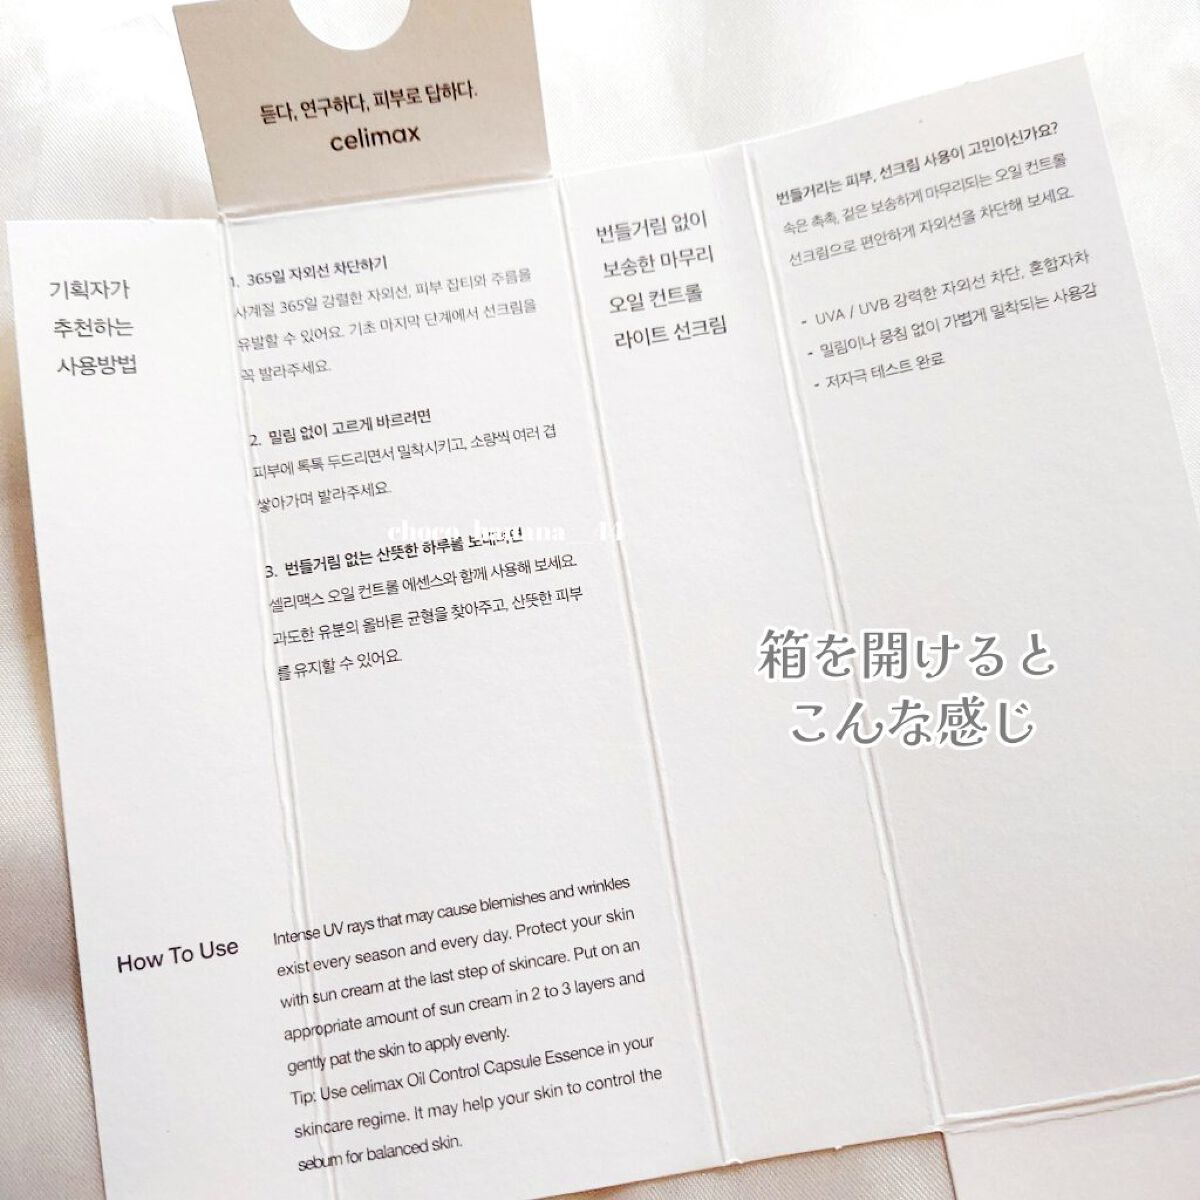 듣다, 연구하다, 피부로 답하다.
celimax
기획자가
추천하는
사용방법
1. 365일 자외선 차단하기
사계절 365일 강렬한 자외선, 피부 잡티와 주름을
유발할 수 있어요. 기초 마지막 단계에서 선크림을
꼭 발라주세요.
2. 밀림 없이 고르게 바르려면
피부에 톡톡 두드리면서 밀착시키고, 소량씩 여러 겹
쌓아가며 발라주세요.
choco_banana__44
3. 번들거림 없는 산뜻한 하루를 보내려면
셀리맥스 오일 컨트롤 에센스와 함께 사용해 보세요.
과도한 유분의 올바른 균형을 찾아주고, 산뜻한 피부
를 유지할 수 있어요.
번들거림 없이
보송한 마무리
오일 컨트롤
라이트 선크림
번들거리는 피부, 선크림 사용이 고민이신가요?
속은 촉촉, 겉은 보송하게 마무리되는 오일 컨트롤
선크림으로 편안하게 자외선을 차단해 보세요.
- UVA / UVB 강력한 자외선 차단, 혼합자차
- 밀림이나 뭉침 없이 가볍게 밀착되는 사용감
- 저자극 테스트 완료
箱を開けると
こんな感じ
How To Use
Intense UV rays that may cause blemishes and wrinkles
exist every season and every day. Protect your skin
with sun cream at the last step of skincare. Put on an
appropriate amount of sun cream in 2 to 3 layers and
gently pat the skin to apply evenly.
Tip: Use celimax Oil Control Capsule Essence in your
skincare regime. It may help your skin to control the
sebum for balanced skin.